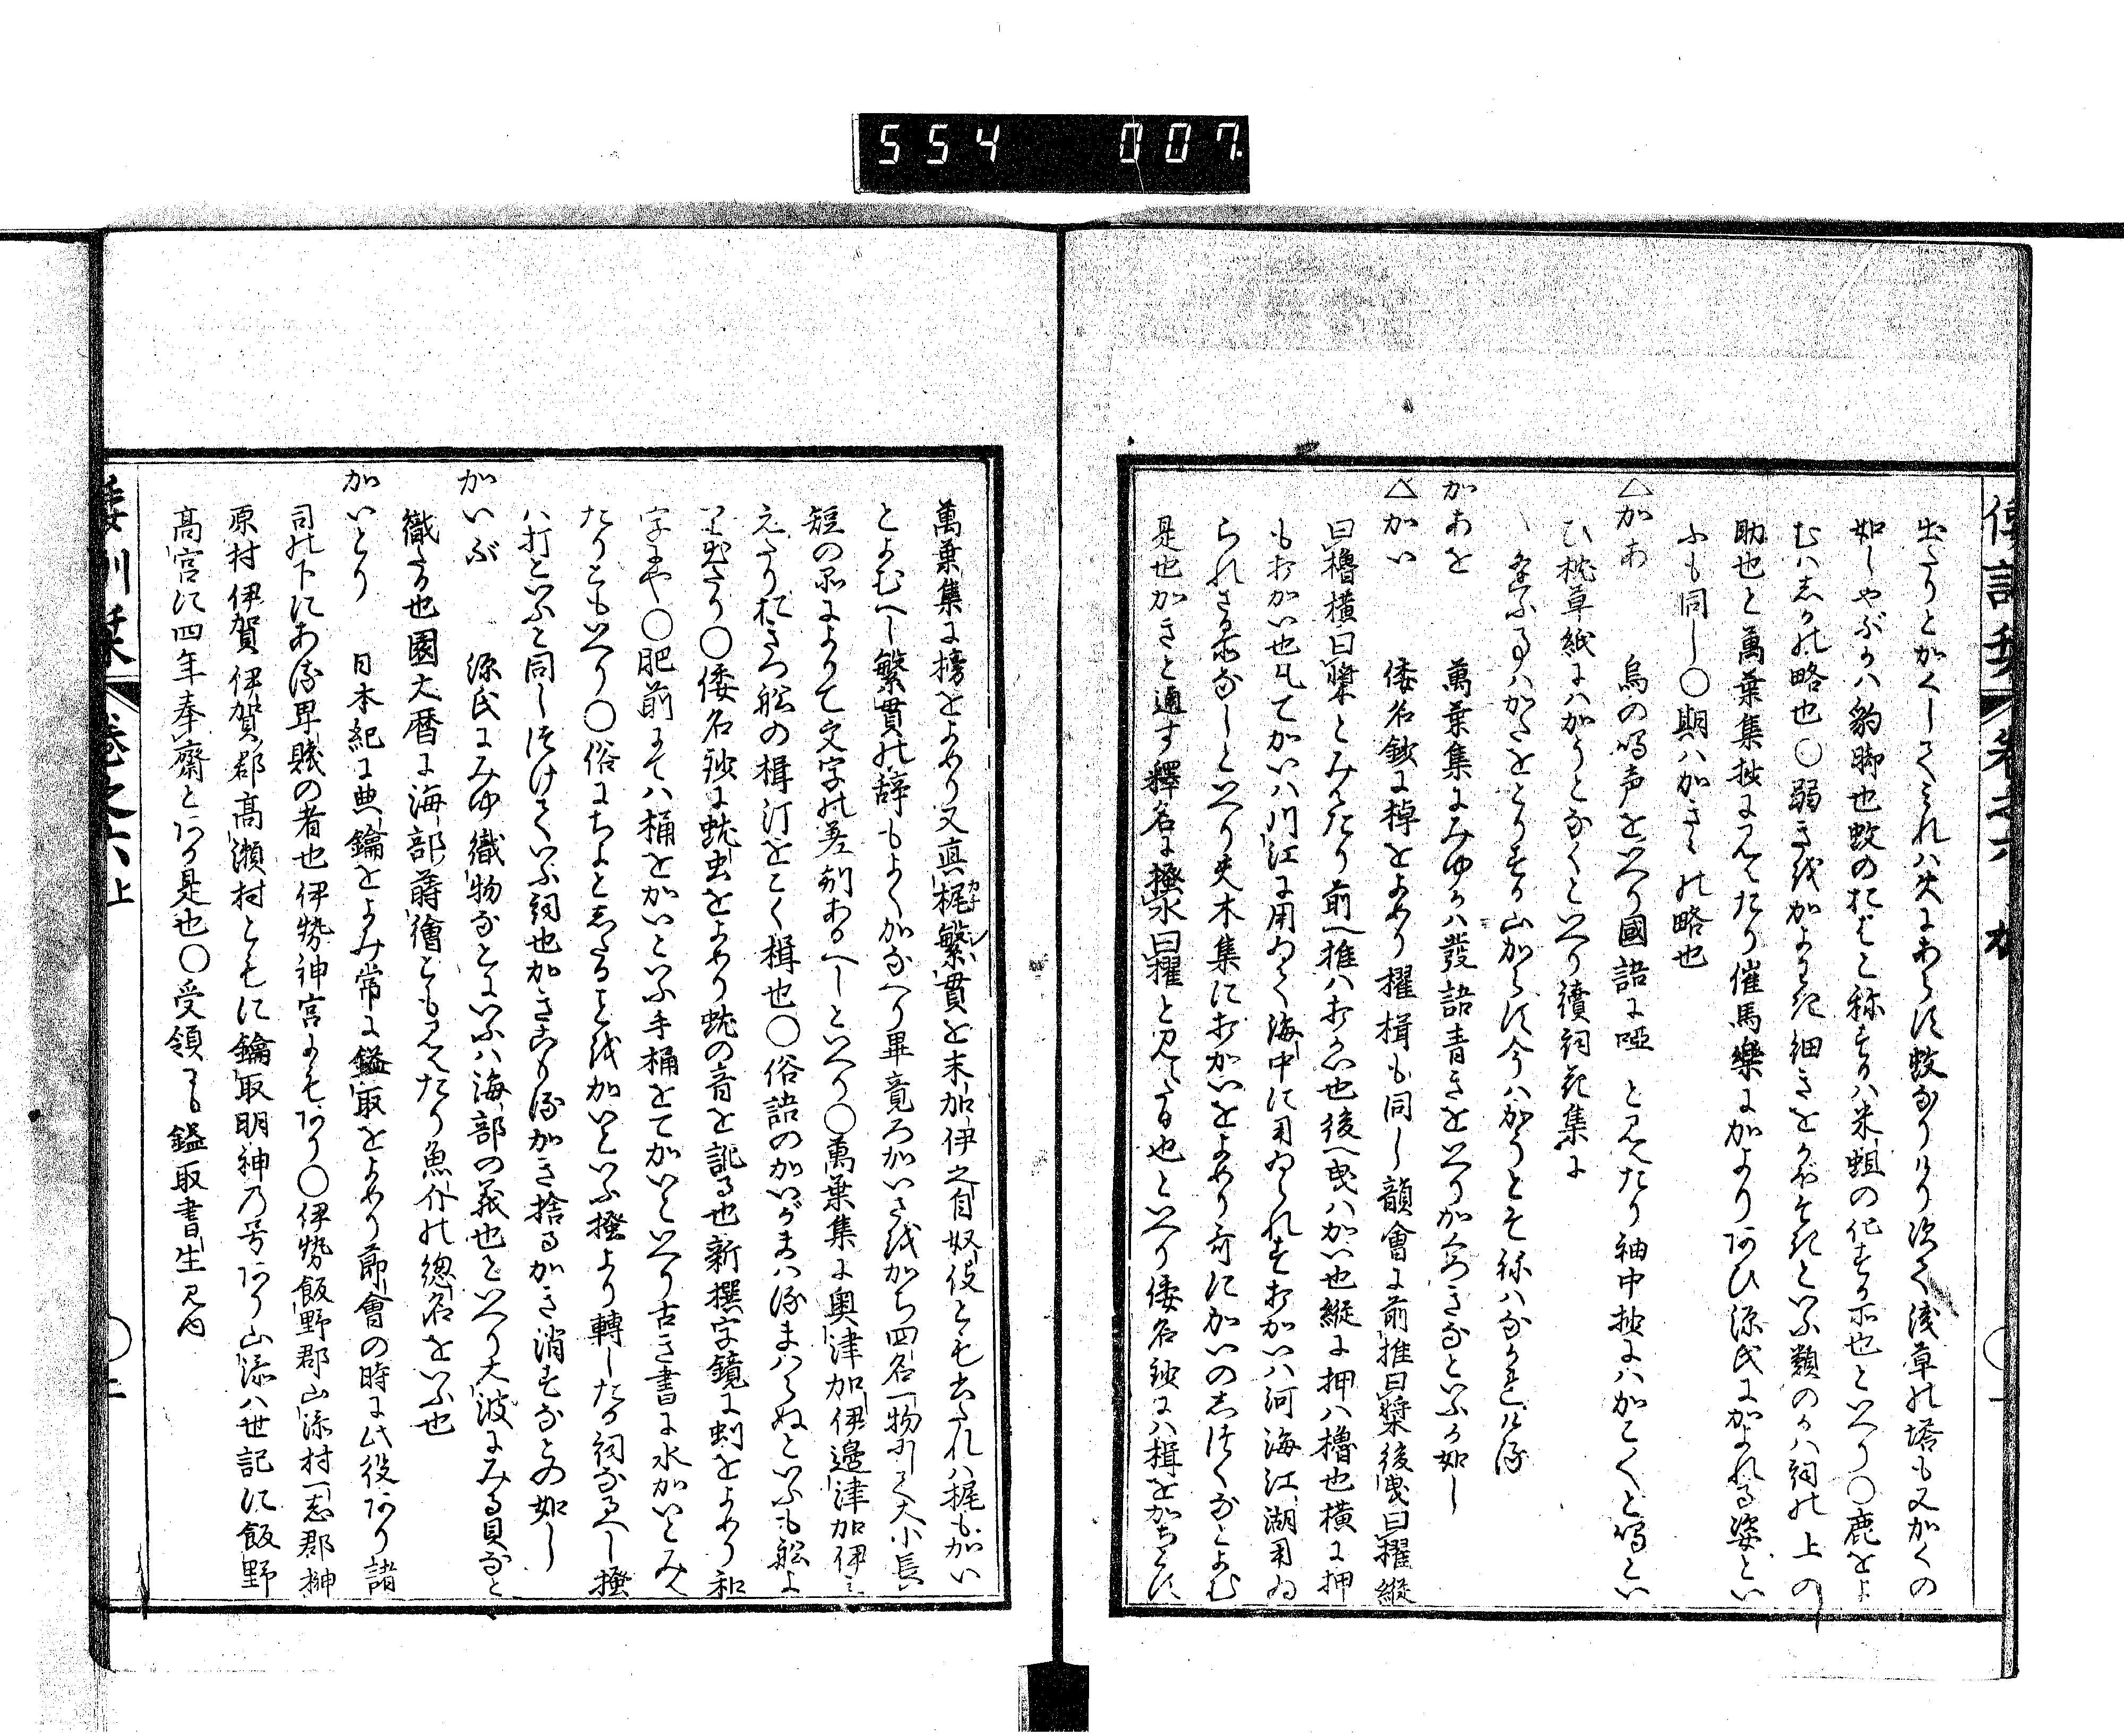 554 007.
出たりとかくしてみれハ火にあらす蚊なりけり次て浅草の塔も又かくの
如しやぶかハ豹脚也蚊のおばと称するハ米蛆の化する所也といへり〇鹿をよ
むハしかの略也〇弱きをかよわき細きをかぼそきといふ類のかハ詞の上の
助也と萬葉集抄に見えたり催馬樂にかよりあひ源氏にかよれる姿とい
ふも同し〇期ハかきりの略也
△かあ 烏の鳴声をいへり國語に啞 と見えたり袖中抄にハかこくと鳴とい
ひ枕草紙にハかうとなくといへり續詞花集に
かあを 萬葉集にみゆるハ發語青きをいへりかくろきなといふか如し
△かい 倭名鈔に棹をよめり擢楫も同し韻會に前推曰槳後曳曰擢縦
曰櫓横曰槳とみえたり前へ推ハおかい也後へ曳ハかい也縦に押ハ櫓也横に押
もおかい也凡てかいハ川江に用ゐて海中に用ゐられすおかいハ河海江湖用ゐ
られさる所なしといへり夫木集におかいをよめり歌にかいのしつくなとよむ
是也かきと通す釋名に撥水曰擢と見えたる也といへり倭名鈔にハ楫をかちとす
萬葉集に榜をよめり又真梶繁貫を末加伊之自奴伎とも出たれハ梶もかい
とよむへし繁貫の辞もよくかなへり畢竟ろかいさをかち四名一物にして大小長
短の品によりて文字の差別あるへしといへり〇萬葉集に奥津加伊邊津加伊と見
えたりおきつ船の楫汀をこく楫也〇俗語のかいがまハるまハらぬといふも船よ
り出たり〇倭名鈔に蚘虫をよめり蚘の音を訛る也新撰字鏡に蚓をよめり和
字にや〇肥前にてハ桶をかいといふ手桶をてかいといへり古き書に水かいとみえ
たりともいへり〇俗にちよとしたる事をかいといふ撥より轉したる詞なるへし撥
ハ打といふと同しつけていふ詞也かきくもるかき捨るかき消すなとの如し
かいぶ 源氏にみゆ織物なとにいふハ海部の義也といへり大波にみる貝なと
織たる也園太暦に海部蒔繪とも見えたり魚介の總名をいふ也
かいとり 日本紀に典鑰をよみ常に鎰取をよめり節會の時に此役あり諸
司の下にある卑賤の者也伊勢神宮にもあり〇伊勢飯野郡山添村一志郡榊
原村伊賀伊賀郡髙瀬村ともに鑰取明神の号あり山添ハ世記に飯野
髙宮に四年奉齋とある是也〇受領にも鎰取書生見ゆ
倭訓栞 卷之六上 〇二